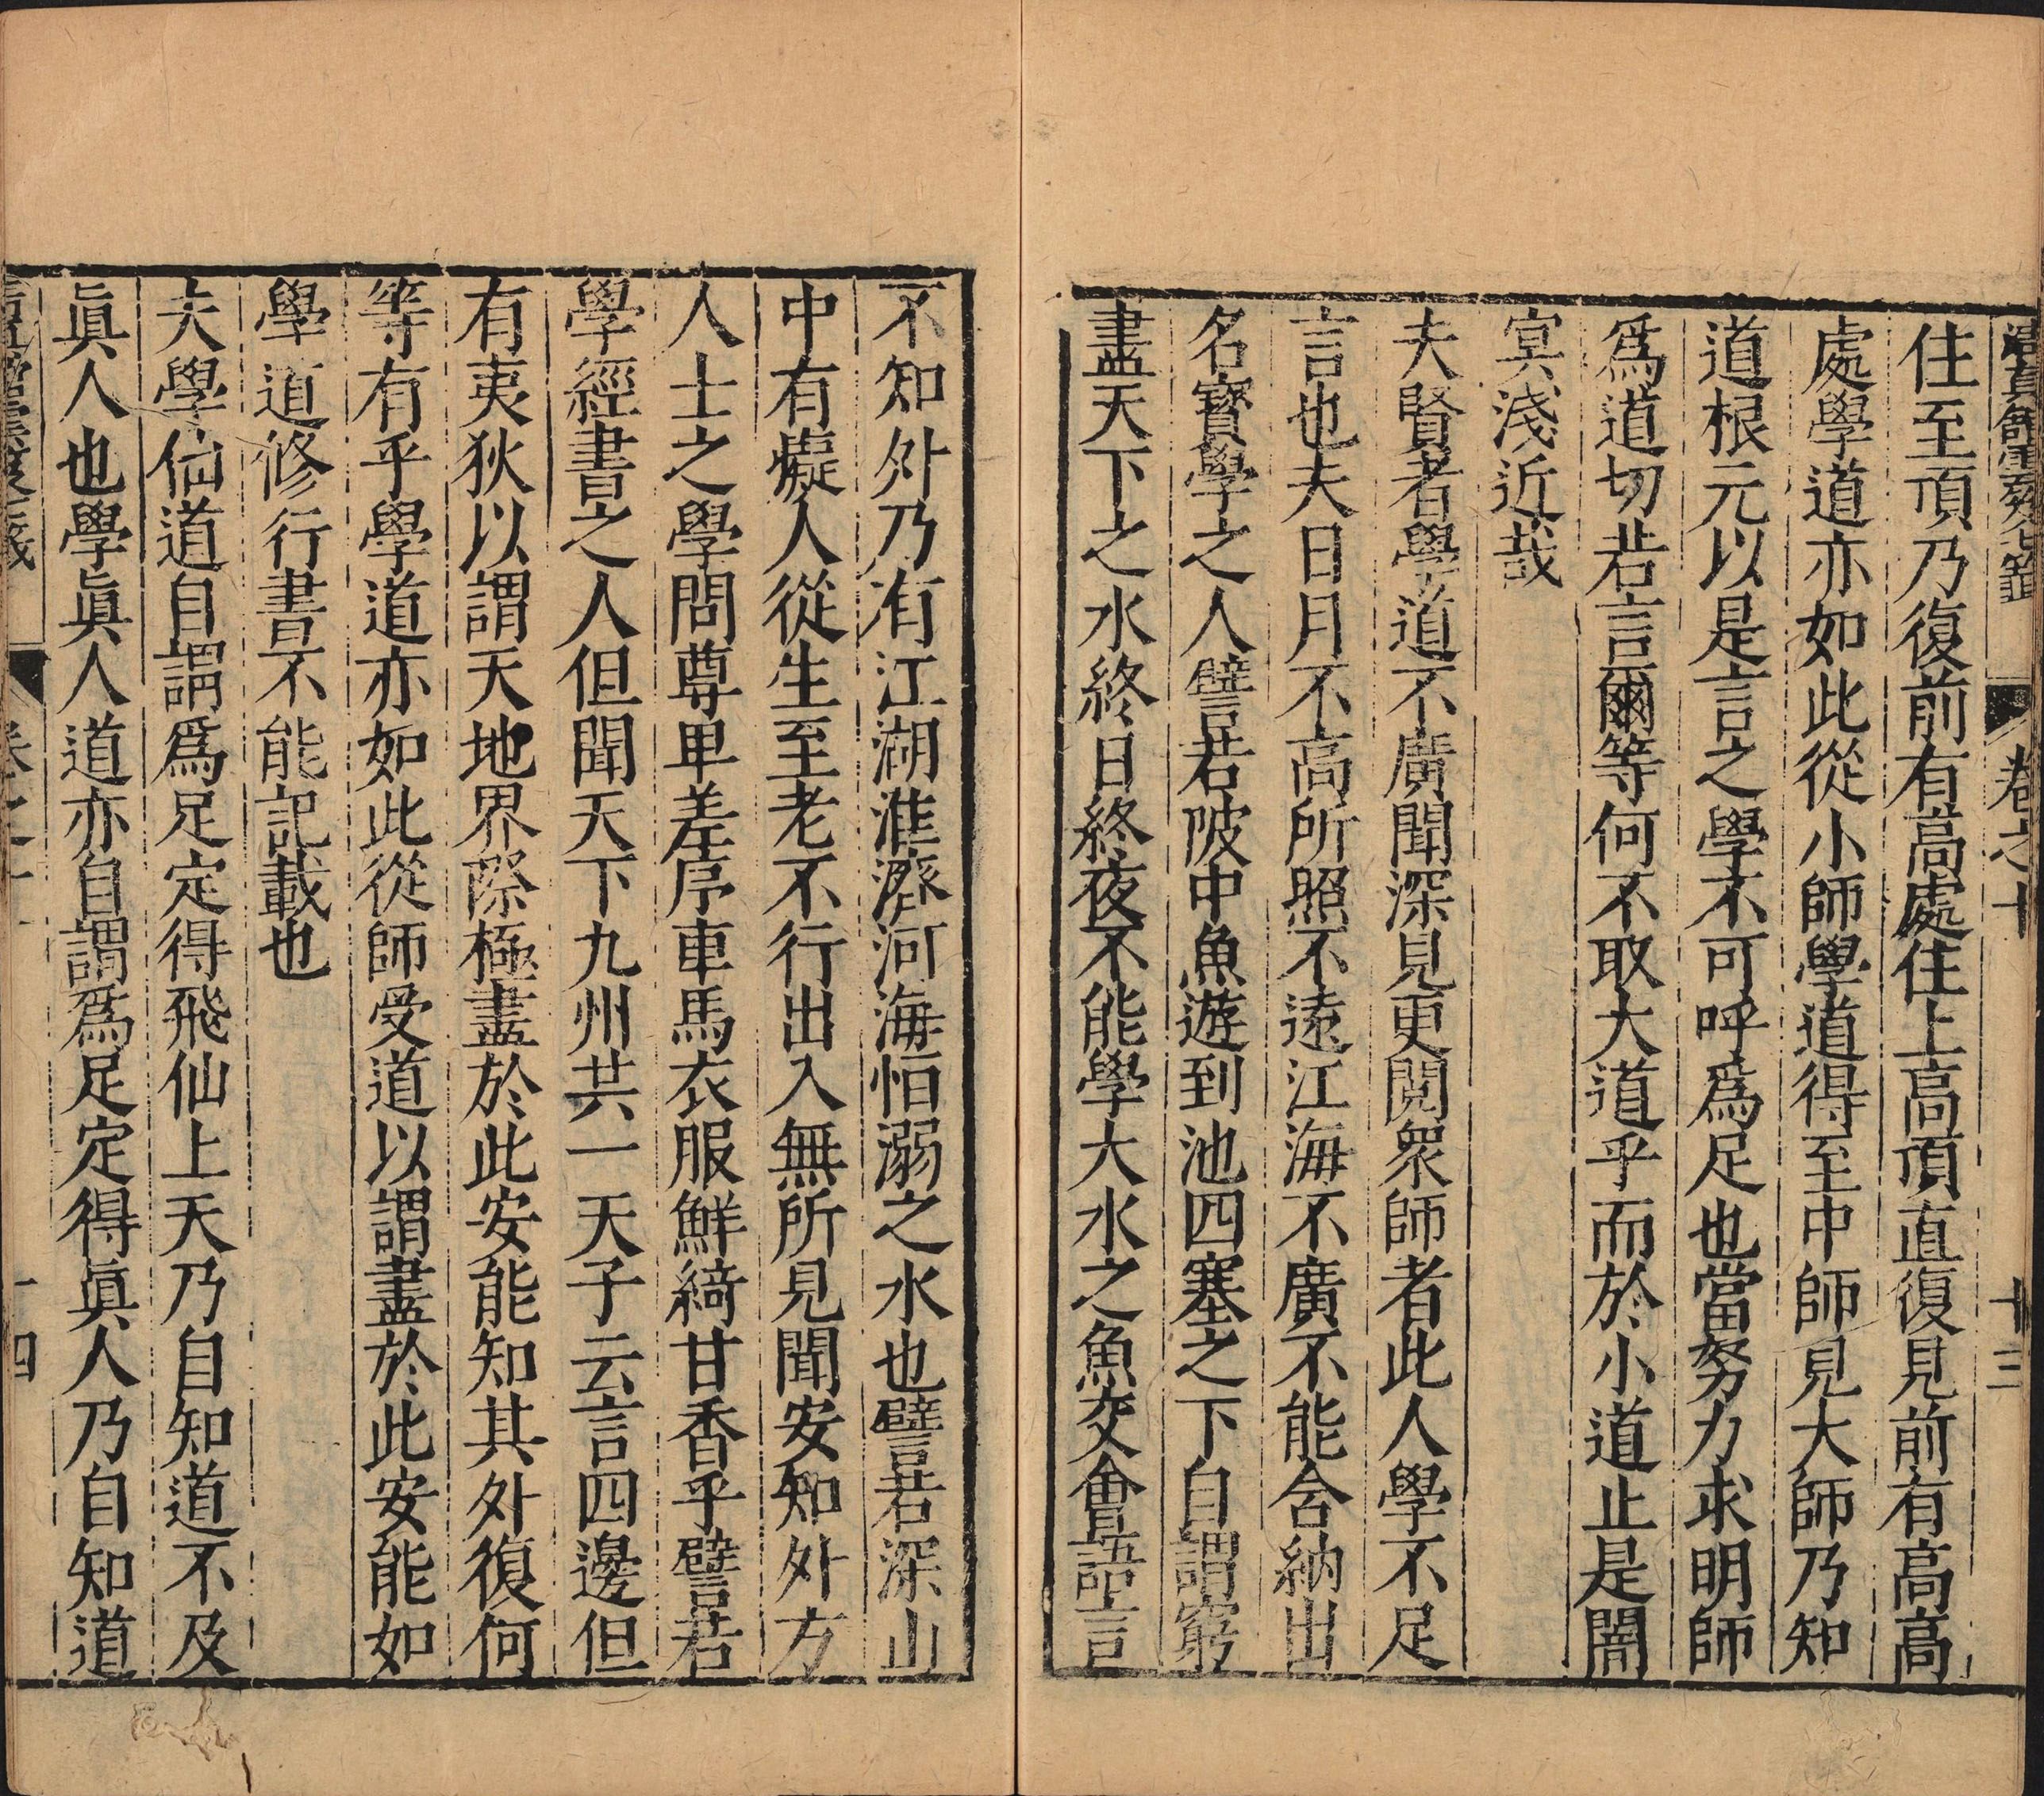 清真館雲笈七籤 卷之十 十三
住至頂乃復前有高處住上高頂直復見前有高高
處學道亦如此從小師學道得至中師見大師乃知
道根元以是言之學不可呼爲足也當努力求明師
爲道切若言爾等何不取大道乎而於小道止是闇
冥淺近哉
夫賢者學道不廣聞深見更閱衆師者此人學不足
言也夫日月不高所照不遠江海不廣不能含納出
名寶學之人譬若陂中魚遊到池四塞之下自謂窮
盡天下之水終日終夜不能學大水之魚交會語言
不知外乃有江湖淮濟河海怕溺之水也譬若深山
中有癡人從生至老不行出入無所見聞安知外方
人士之學問尊卑差序車馬衣服鮮綺甘香乎譬若
學經書之人但聞天下九州共一天子云言四邊但
有夷狄以謂天地界際極盡於此安能知其外復何
等有乎學道亦如此從師受道以謂盡於此安能如
學道修行書不能記載也
夫學仙道自謂爲足定得飛仙上天乃自知道不及
眞人也學眞人道亦自謂爲足定得眞人乃自知道
卷之十 十四